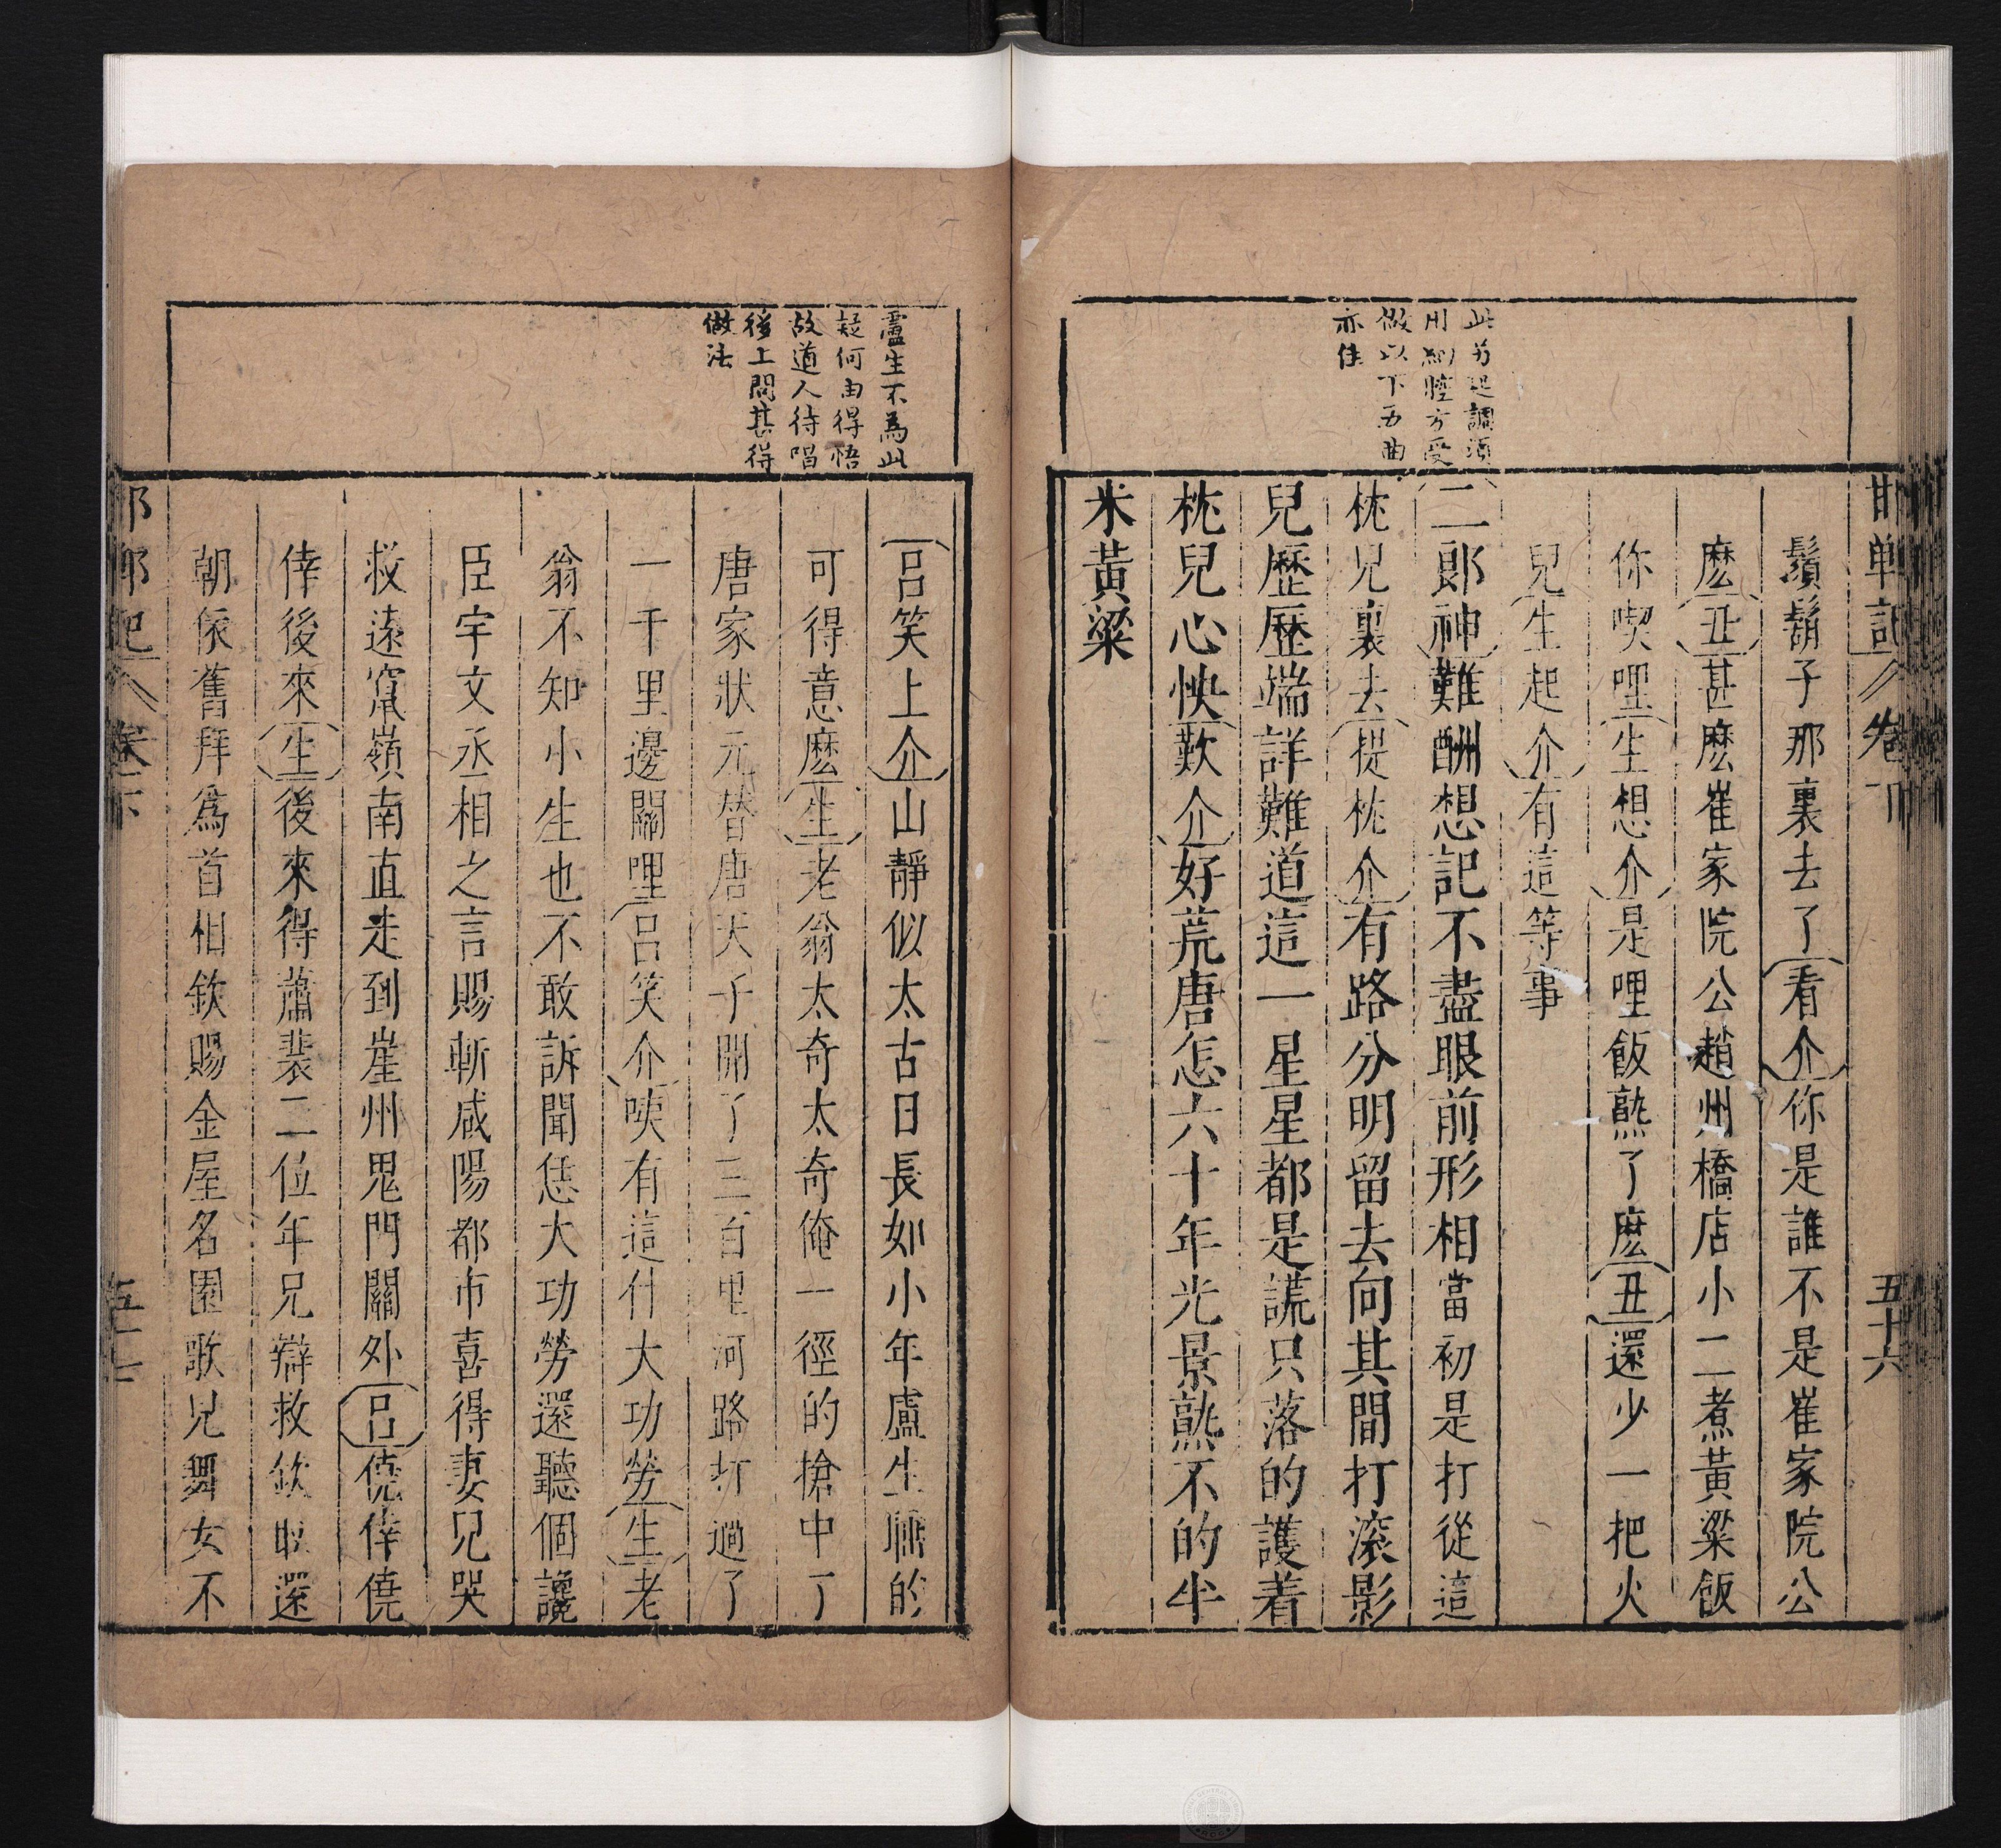 邯鄲記 卷下 五十六
鬚鬍子那裏去了看介你是誰不是崔家院公
麽丑甚麽崔家院公趙州橋店小二煮黃粱飯
你喫哩生想介是哩飯熟了麽丑還少一把火
兒生起介有這等事
二郎神難酬想記不盡眼前形相當初是打從這
枕兒裏去提枕介有路分明留去向其間打滚影
兒歷歷端詳難道這一星星都是謊只落的護着
枕兒心怏歎介好荒唐怎六十年光景熟不的半
米黃粱
此另起調須
用細腔方受
做以下五曲
亦佳
盧生不為此
疑何由得悟
故道人待唱
後上問甚得
做法
呂笑上介山靜似太古日長如小年盧生睡的
可得意麽生老翁太奇太奇俺一徑的搶中了
唐家狀元替唐天子開了三百里河路打過了
一千里邊關哩呂笑介咦有這什大功勞生老
翁不知小生也不敢訴聞恁大功勞還聽個讒
臣宇文丞相之言賜斬咸陽都市喜得妻兒哭
救遠竄嶺南直走到崖州鬼門關外呂僥倖僥
倖後來生後來得蕭裴二位年兄辯救欽取還
朝依舊拜爲首相欽賜金屋名園歌兒舞女不
邯鄲記 卷下 五十七